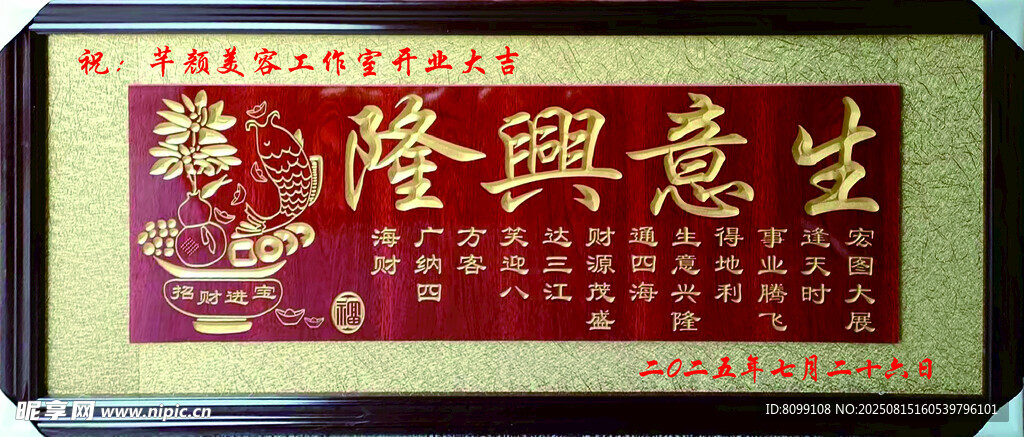 祝：芊颜美容工作室开业大吉
生意興隆
宏图大展
逢天时
事业腾飞
得地利
生意兴隆
通四海
财源茂盛
达三江
笑迎八
方客
广纳四
海财
招财进宝
福
二〇二五年七月二十六日
昵享网 www.nipic.cn
ID:8099108 NO:20250815160539796101